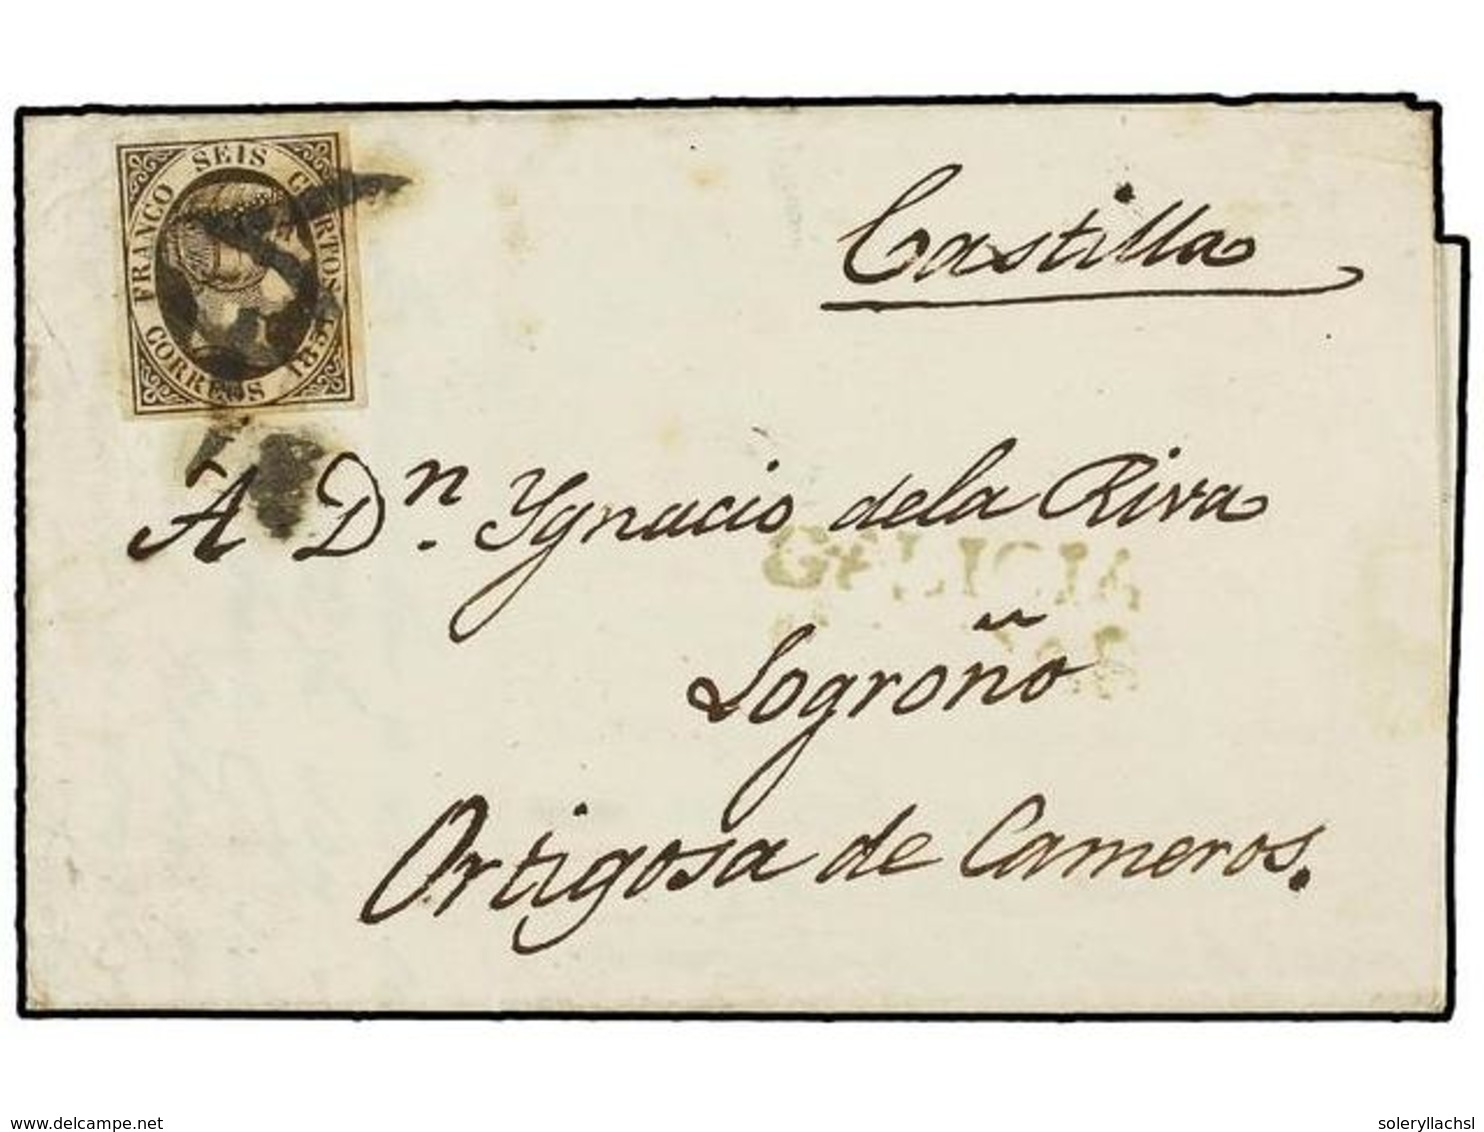 FRANCO SEIS CUARTOS
CORREOS 1851
Castilla
A Dn. Ygnacio dela Riva
Logroño
Ortigosa de Cameros.
delcampe.net
soleryllachsl